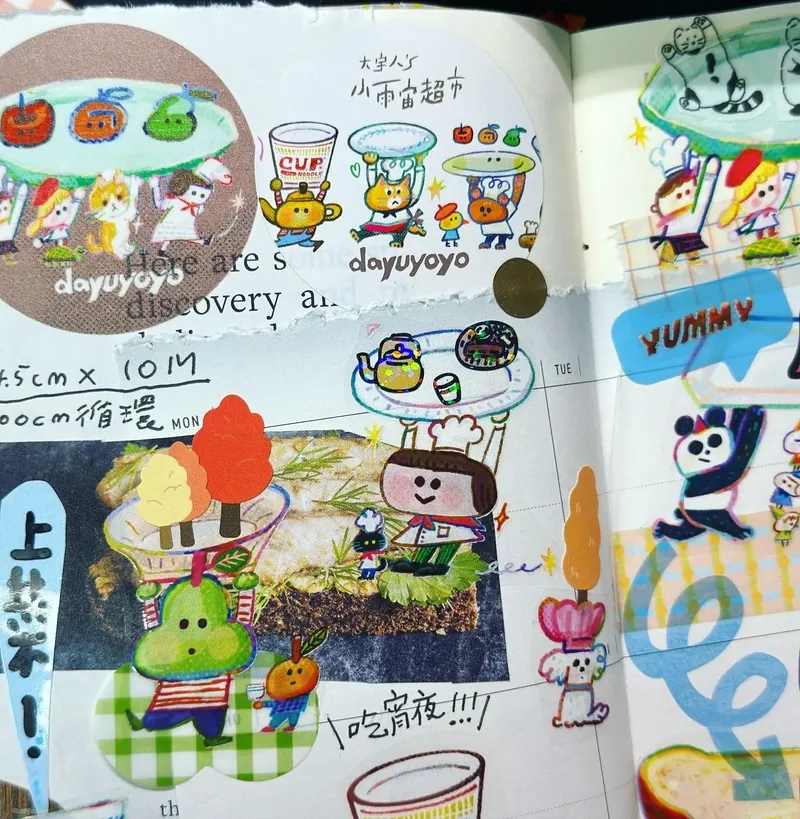 大宇人's
小雨宙超市
CUP
NOODLE
dayuyoyo
dayuyoyo
Here are some
discovery and
.5cm x 10M
00cm循環
MON
TUE
YUMMY
上菜
!
\吃宵夜!!!/
th